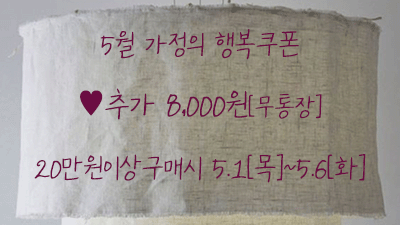 5월 가정의 행복쿠폰
♥추가 8,000원[무통장]
20만원이상구매시 5.1[목]~5.6[화]